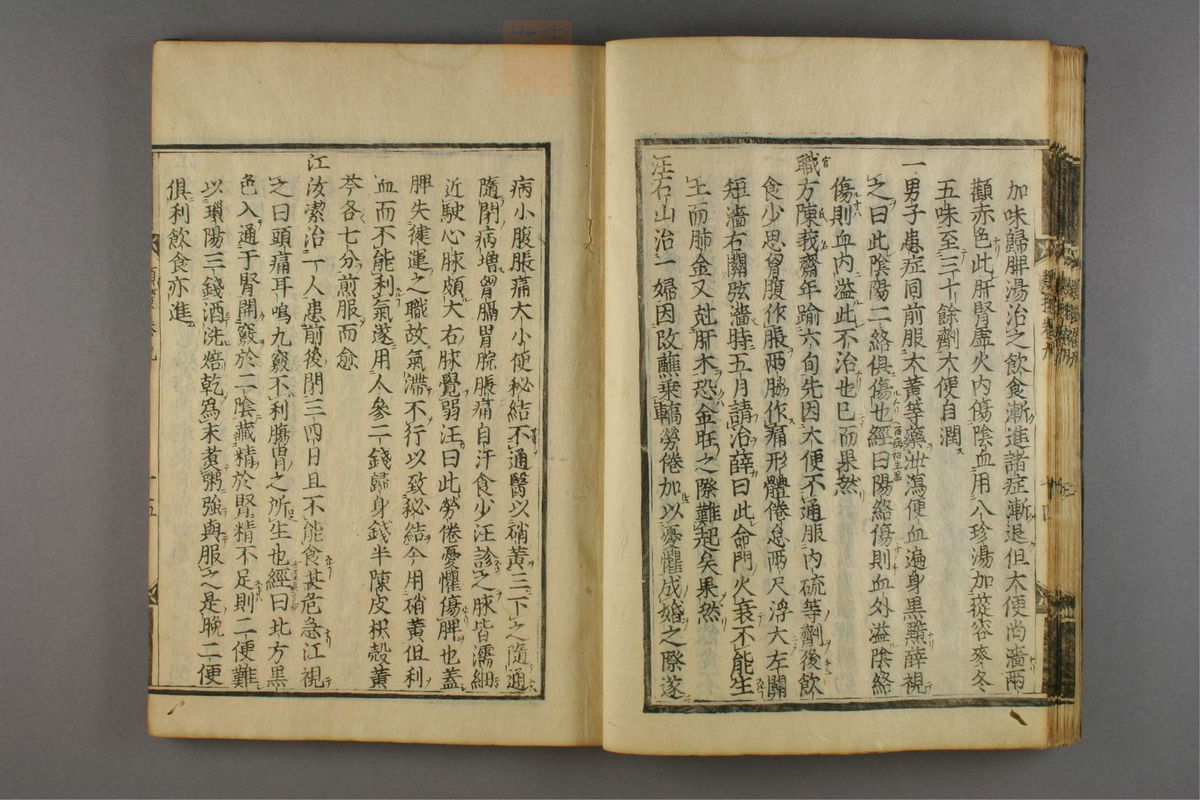 加味歸脾湯治之飮食漸進諸症漸退但大便尚濇兩
顴赤色此肝腎虛火內傷陰血用八珍湯加蓯蓉麥冬
五味至三十餘劑大便自潤
一男子患症同前服大黃等藥泄瀉便血遍身黑黯薛視
之曰此陰陽二絡俱傷也經曰陽絡傷則血外溢陰絡
傷則血內溢此不治也已而果然
職方陳莪齋年踰六旬先因大便不通服內硫等劑後飮
食少思胷腹作脹兩脇作痛形體倦怠兩尺浮大左關
短濇右關弦濇時五月請治薛曰此命門火衰不能生
土而肺金又尅肝木恐金旺之際難起矣果然
汪石山治一婦因改醮乘轎勞倦加以憂懼成婚之際遂
病小腹脹痛大小便秘結不通醫以硝黃三下之隨通
隨閉病增胷膈胃脘脹痛自汗食少汪診之脉皆濡細
近駛心脉頗大右脉覺弱汪曰此勞倦憂懼傷脾也蓋
脾失健運之職故氣滯不行以致秘結今用硝黃但利
血而不能利氣遂用人參二錢歸身錢半陳皮枳殼黃
芩各七分煎服而愈
江汝潔治一人患前後閉三四日且不能食甚危急江視
之曰頭痛耳鳴九竅不利腸胃之所生也經曰北方黑
色入通于腎開竅於二陰藏精於腎精不足則二便難
以瑣陽三錢酒洗焙乾爲末煑粥強與服之是晚二便
俱利飮食亦進